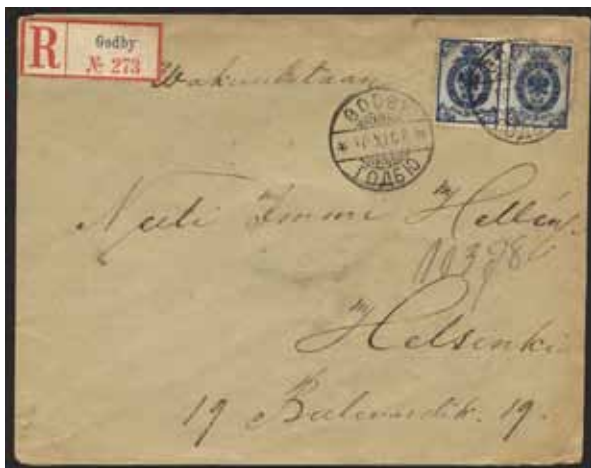 R Godby
№ 273
Wakuutetaan
GODBY
ГОДБЮ
Neiti Immi Hellén
Helsinki
19 Bulevardik. 19.